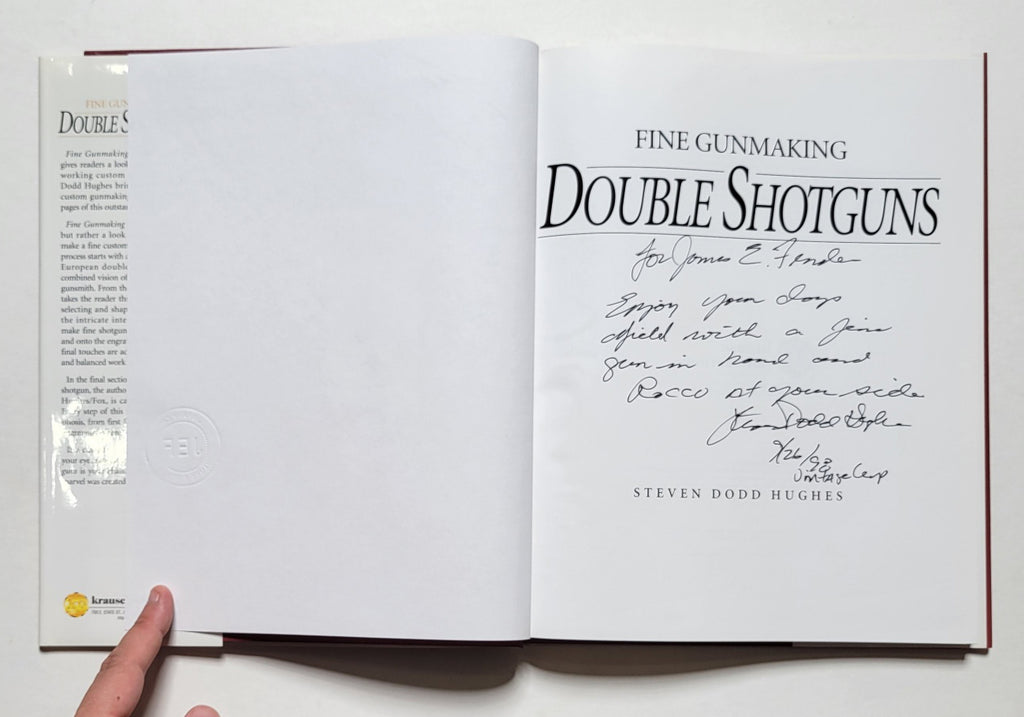 FINE GUN
DOUBLE S
Fine Gunmaking
gives readers a loo
working custom
Dodd Hughes bri
custom gunmakin
pages of this outsta
Fine Gunmaking
but rather a look
make a fine custom
process starts with
European doubl
combined vision of
gunsmith. From th
takes the reader th
selecting and shap
the intricate inte
make fine shotgun
and onto the engra
final touches are ac
and balanced work
In the final sectio
shotgun, the autho
Fox, is ca
step of this
from first
your
marvel was created
krause
JEF
FINE GUNMAKING
DOUBLE SHOTGUNS
for James E. Fender
Enjoy your days
afield with a fine
gun in hand and
Rocco at your side
Steven Dodd Hughes
9/26/98
Vintage Cup
STEVEN DODD HUGHES